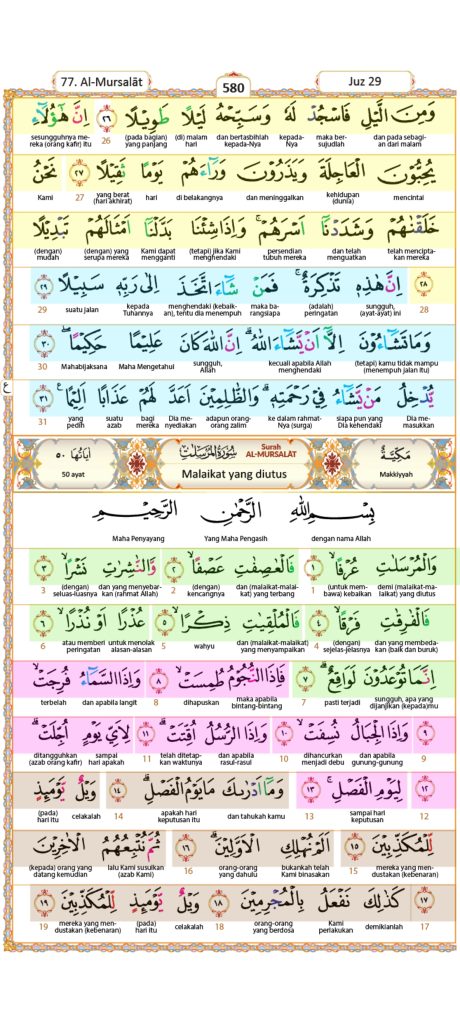 77. Al-Mursalāt
580
Juz 29
وَمِنَ الَّيْلِ فَاسْجُدْ لَهٗ وَسَبِّحْهُ لَيْلًا طَوِيْلًا ٢٦ اِنَّ هٰٓؤُلَاۤءِ
sesungguhnya me- (pada bagian) (di) malam dan bertasbihlah kepada- maka ber- dan pada sebagi-
reka (orang kafir) itu 26 yang panjang hari kepada-Nya Nya sujudlah an dari malam
يُحِبُّوْنَ الْعَاجِلَةَ وَيَذَرُوْنَ وَرَاۤءَهُمْ يَوْمًا ثَقِيْلًا ٢٧ نَحْنُ
Kami 27 yang berat hari di belakangnya dan meninggalkan kehidupan mencintai
(hari akhirat) (dunia)
خَلَقْنٰهُمْ وَشَدَدْنَآ اَسْرَهُمْۚ وَاِذَا شِئْنَا بَدَّلْنَآ اَمْثَالَهُمْ تَبْدِيْلًا
(dengan) (dengan) yang Kami dapat (tetapi) jika Kami persendian dan telah telah mencipta-
mudah serupa mereka mengganti menghendaki tubuh mereka menguatkan kan mereka
٢٨ اِنَّ هٰذِهٖ تَذْكِرَةٌ ۚ فَمَنْ شَاۤءَ اتَّخَذَ اِلٰى رَبِّهٖ سَبِيْلًا ٢٩
29 suatu jalan kepada menghendaki (kebaik- maka ba- (adalah) sungguh, 28
Tuhannya an), tentu dia menempuh rangsiapa peringatan (ayat-ayat) ini
وَمَا تَشَاۤءُوْنَ اِلَّآ اَنْ يَّشَاۤءَ اللّٰهُ ۗاِنَّ اللّٰهَ كَانَ عَلِيْمًا حَكِيْمًاۖ ٣٠
30 Mahabijaksana Maha Mengetahui sungguh, kecuali apabila Allah (tetapi) kamu tidak mampu
Allah menghendaki (menempuh jalan itu)
ع
يُّدْخِلُ مَنْ يَّشَاۤءُ فِيْ رَحْمَتِهٖۗ وَالظّٰلِمِيْنَ اَعَدَّ لَهُمْ عَذَابًا اَلِيْمًا ٣١
31 yang suatu bagi Dia me- adapun orang- ke dalam rahmat- siapa pun yang Dia me-
pedih azab mereka nyediakan orang zalim Nya (surga) Dia kehendaki masukkan
مَكِّيَّةٌ
Makkiyyah
سُوْرَةُ الْمُرْسَلٰتِ
Surah
AL-MURSALĀT
Malaikat yang diutus
اٰيَاتُهَا ٥٠
50 ayat
بِسْمِ اللّٰهِ الرَّحْمٰنِ الرَّحِيْمِ
Maha Penyayang Yang Maha Pengasih dengan nama Allah
وَالْمُرْسَلٰتِ عُرْفًاۙ ١ فَالْعٰصِفٰتِ عَصْفًاۙ ٢ وَّالنّٰشِرٰتِ نَشْرًاۙ ٣
3 (dengan) dan yang menyebar- 2 (dengan) dan (malaikat-malai- 1 (untuk mem- demi (malaikat-ma-
seluas-luasnya kan (rahmat Allah) kencangnya kat) yang terbang bawa) kebaikan laikat) yang diutus
فَالْفٰرِقٰتِ فَرْقًاۙ ٤ فَالْمُلْقِيٰتِ ذِكْرًاۙ ٥ عُذْرًا اَوْ نُذْرًاۙ ٦
6 atau memberi untuk menolak 5 wahyu dan (malaikat-malaikat) 4 (dengan) dan yang membeda-
peringatan alasan-alasan yang menyampaikan sejelas-jelasnya kan (baik dan buruk)
اِنَّمَا تُوْعَدُوْنَ لَوَاقِعٌۗ ٧ فَاِذَا النُّجُوْمُ طُمِسَتْۙ ٨ وَاِذَا السَّمَاۤءُ فُرِجَتْۙ
terbelah dan apabila langit 8 dihapuskan maka apabila 7 pasti terjadi sungguh, apa yang
bintang-bintang dijanjikan (kepada)mu
٩ وَاِذَا الْجِبَالُ نُسِفَتْۙ ١٠ وَاِذَا الرُّسُلُ اُقِّتَتْۗ ١١ لِاَيِّ يَوْمٍ اُجِّلَتْۗ
ditangguhkan sampai 11 telah ditetap- dan apabila 10 dihancurkan dan apabila 9
(azab orang kafir) hari apakah kan waktunya rasul-rasul menjadi debu gunung-gunung
١٢ لِيَوْمِ الْفَصْلِۚ ١٣ وَمَآ اَدْرٰىكَ مَا يَوْمُ الْفَصْلِۗ ١٤ وَيْلٌ يَّوْمَىِٕذٍ
(pada) celakalah 14 apakah hari dan tahukah kamu 13 sampai hari 12
hari itu keputusan itu keputusan
لِّلْمُكَذِّبِيْنَ ١٥ اَلَمْ نُهْلِكِ الْاَوَّلِيْنَۗ ١٦ ثُمَّ نُتْبِعُهُمُ الْاٰخِرِيْنَ
(kepada) orang yang lalu Kami susulkan 16 orang-orang bukankah telah 15 mereka yang men-
datang kemudian (azab Kami) yang dahulu Kami binasakan dustakan (kebenaran)
١٧ كَذٰلِكَ نَفْعَلُ بِالْمُجْرِمِيْنَ ١٨ وَيْلٌ يَّوْمَىِٕذٍ لِّلْمُكَذِّبِيْنَ ١٩
19 mereka yang men- (pada) celakalah 18 orang-orang Kami demikianlah 17
dustakan (kebenaran) hari itu yang berdosa perlakukan